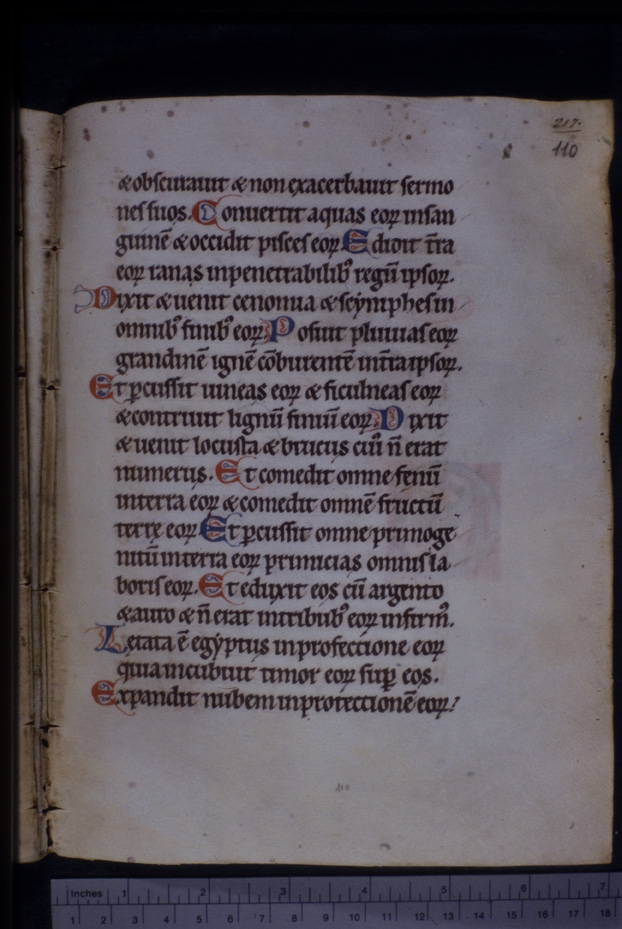 217.
110
& obscurauit & non exacerbauit sermo
nes suos. Conuertit aquas eoꝝ insan
guinē & occidit pisces eoꝝ. Edidit t̄ra
eoꝝ ranas inpenetrabilibꝰ regū ipsoꝝ.
Dixit & uenit cenomia & scẏniphes in
omnibꝰ finibꝰ eoꝝ. Posuit pluuias eoꝝ
grandinē ignē cōburentē int̄ra ipsoꝝ.
Et ꝑcussit uineas eoꝝ & ficulneas eoꝝ
& contriuit lignū finiū eoꝝ. Dixit
& uenit locusta & brucus cui' n̄ erat
numerus. Et comedit omne fenū
interra eoꝝ & comedit omnē fructū
terrę eoꝝ. Et ꝑcussit omne primoge
nitū interra eoꝝ primicias omnis la
boris eoꝝ. Et eduxit eos cū argento
& auro & n̄ erat intribubꝰ eoꝝ infirmꝰ.
Letata ē egẏptus inprofectione eoꝝ
quia incubuit timor eoꝝ suꝑ eos.
Expandit nubem inprotectionē eoꝝ
110
inches 1 2 3 4 5 6 7
1 2 3 4 5 6 7 8 9 10 11 12 13 14 15 16 17 18